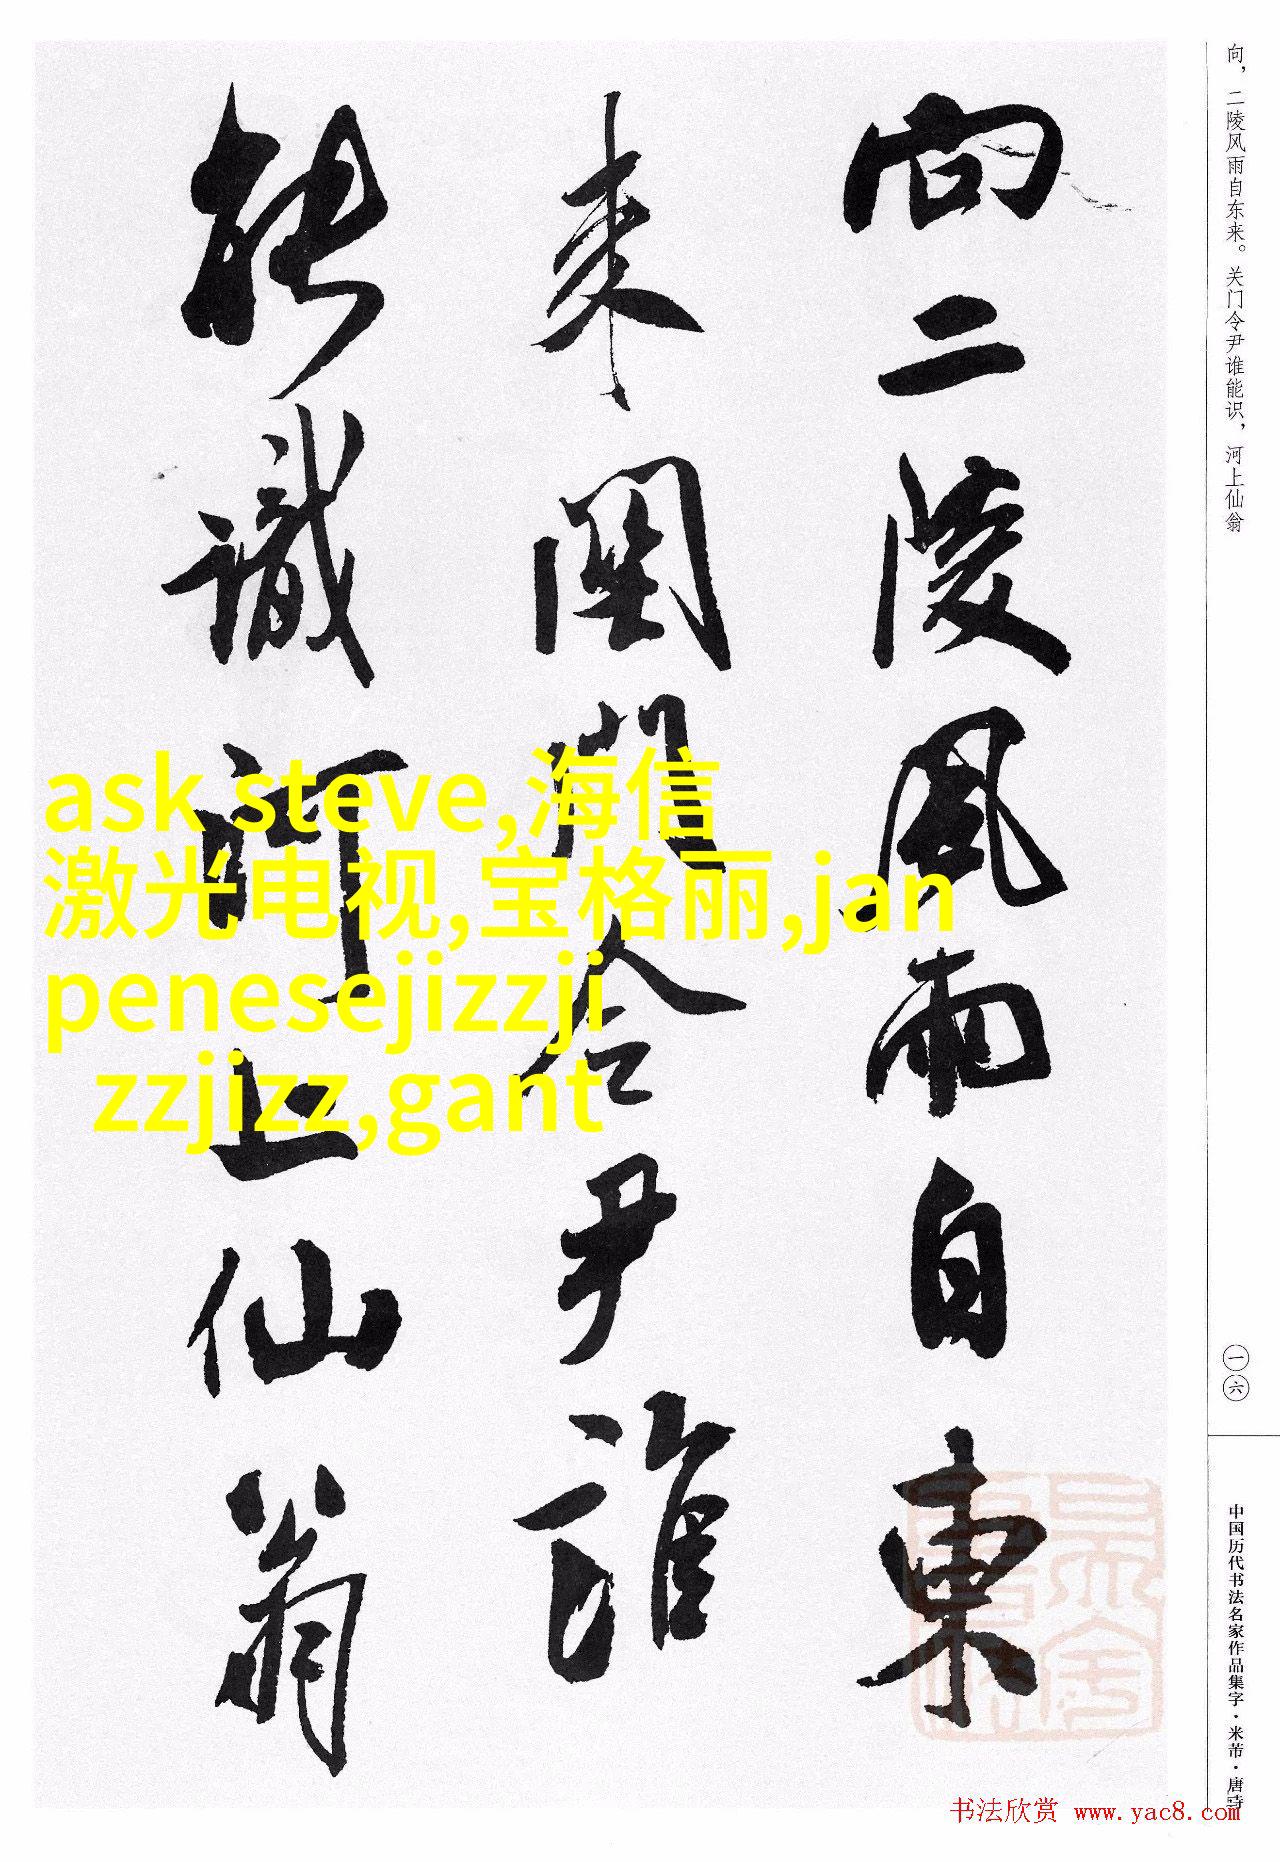 向二陵風雨自東
来關門令尹誰
能識河上仙翁
向，二陵风雨自东来。关门令尹谁能识，河上仙翁
一六
中国历代书法名家作品集字·米芾·唐诗
ask steve,海信
激光电视,宝格丽,jan
penesejizzji
zzjizz,gant
书法欣赏 www.yac8.com